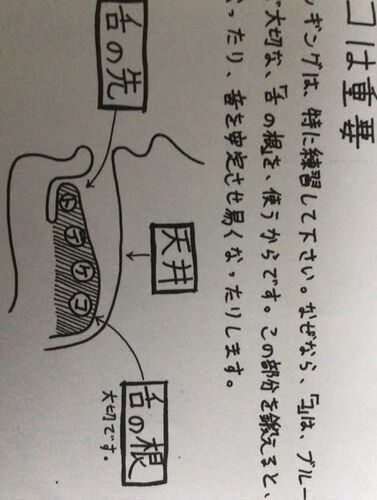 コは重要
ギングは、特に練習して下さい。なぜなら、「コ」は、ブルー
大切な、「舌の根」を、使うからです。この部分を鍛えると、
ったり、音を安定させ易くなったりします。
舌の先
天井
舌の根
大切です。
ト テ ケ コ